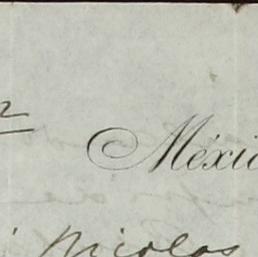 Méxic
Nicolas